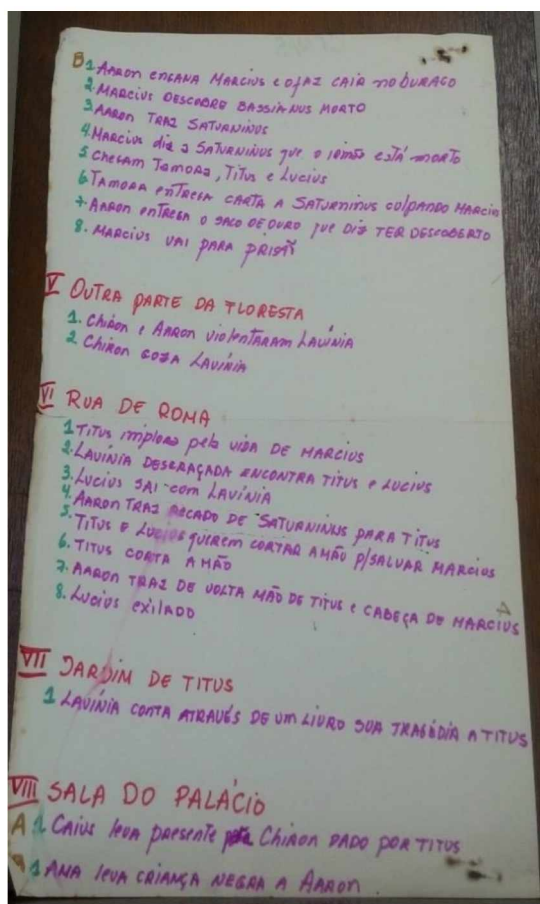 B 1. AARON ENGANA MARCIUS E O FAZ CAIR NO BURACO
2. MARCIUS DESCOBRE BASSIANUS MORTO
3. AARON TRAZ SATURNINUS
4. MARCIUS diz a SATURNINUS que o irmão está morto
5. Chegam Tamora, Titus e Lucius
6. TAMORA entrega carta a SATURNINUS culpando MARCIUS
7. AARON entrega o saco de ouro que diz TER DESCOBERTO
8. MARCIUS VAI PARA prisão
V OUTRA PARTE DA FLORESTA
1. Chiron e AARON violentaram LAVÍNIA
2 Chiron goza LAVÍNIA
VI RUA DE ROMA
1. TITUS implora pela VIDA DE MARCIUS
2. LAVÍNIA DESGRAÇADA ENCONTRA TITUS e LUCIUS
3. LUCIUS SAI COM LAVÍNIA
4. AARON TRAZ RECADO DE SATURNINUS PARA TITUS
5. TITUS e LUCIUS querem CORTAR A MÃO P/SALVAR MARCIUS
6. TITUS CORTA A MÃO
7. AARON TRAZ DE VOLTA MÃO DE TITUS e CABEÇA DE MARCIUS
8. LUCIUS exilADO
A
VII JARDIM DE TITUS
1 LAVÍNIA CONTA ATRAVÉS DE UM LIVRO SUA TRAGÉDIA A TITUS
VIII SALA DO PALÁCIO
A 1 CAIUS leva presente Chiron DADO POR TITUS
B 1 AMA leva CRIANÇA NEGRA A AARON